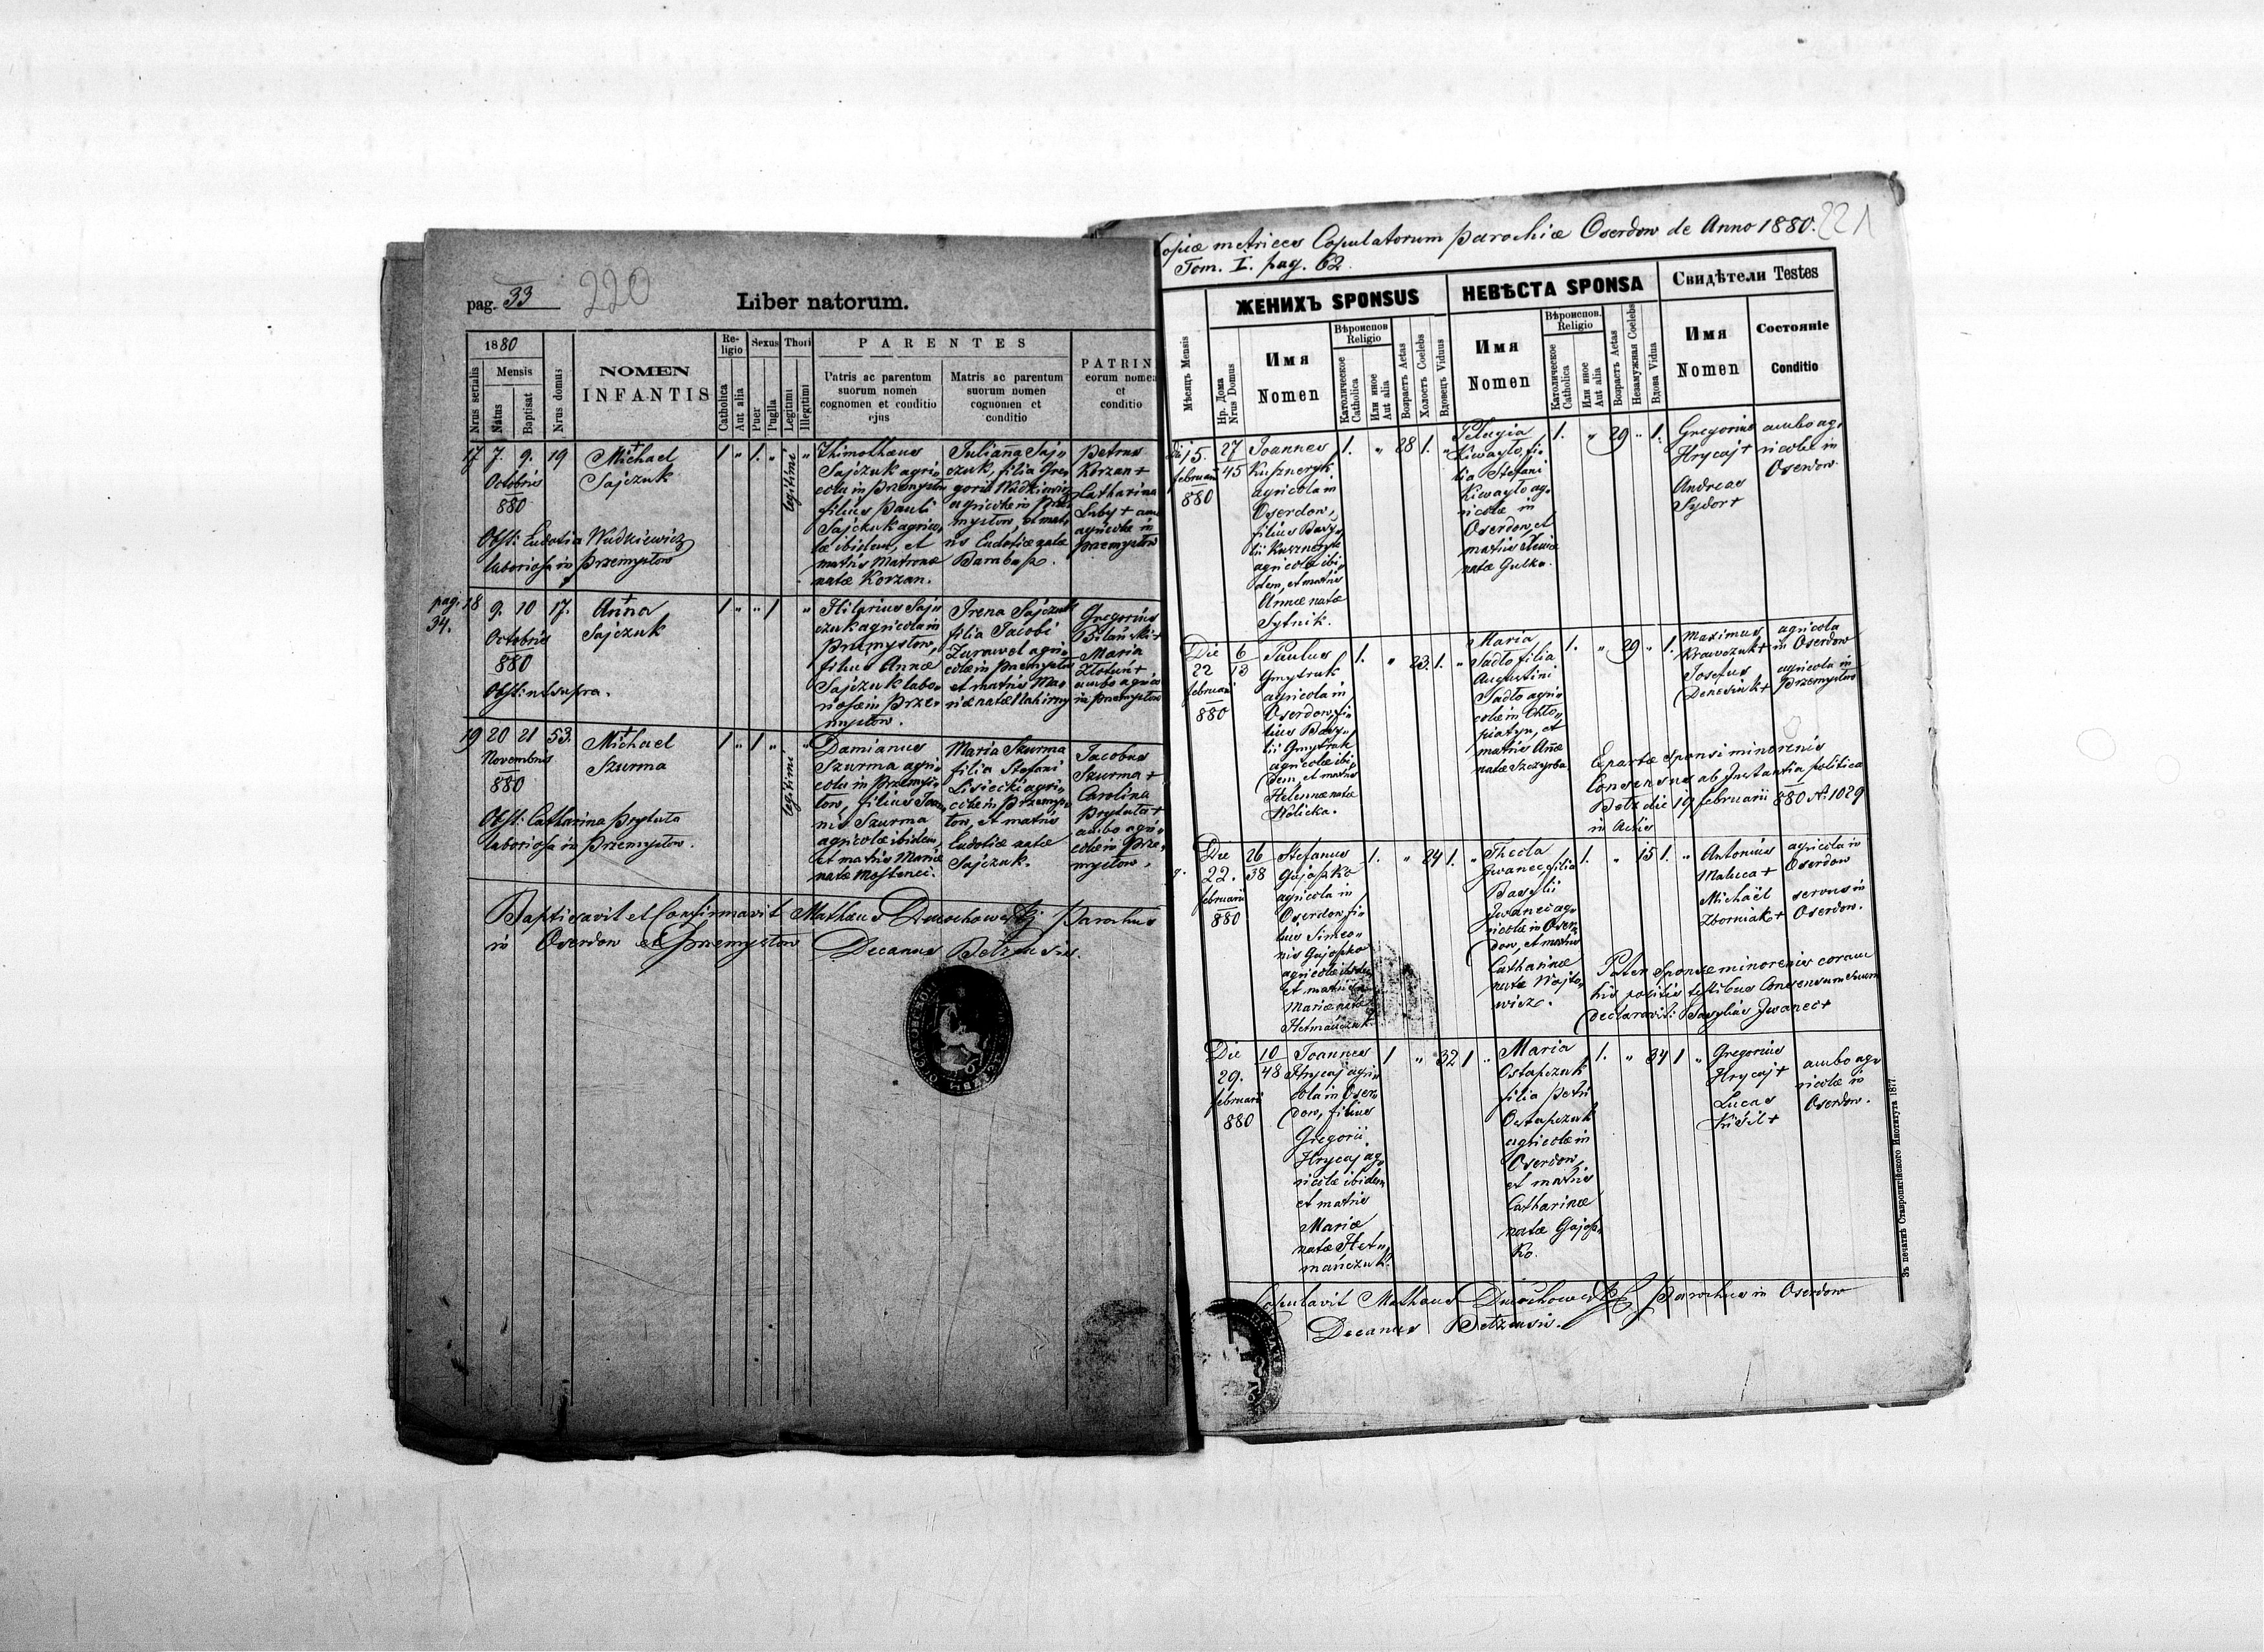 pag. 33 220 Liber natorum.
1880
Mensis
Nrus serialis
Natus
Baptisat
Nrus domus
NOMEN
INFANTIS
Religio
Catholica
Aut alia
Sexus
Puer
Puella
Thori
Legitimi
Illegitimi
PARENTES
Patris ac parentum
suorum nomen
cognomen et conditio
ejus
Matris ac parentum
suorum nomen
cognomen et
conditio
PATRIN
eorum nomen
et
conditio
17 7. 9. 19
Octobris
880
Michael
Sajczuk
1 " 1. " legitimi "
Thimotheus
Sajczuk agri-
cola in Przemysłów
filius Pauli
Sajczuk agrico-
læ ibidem, et
matris Matronæ
natæ Korzan.
Julianna Saj-
czuk, filia Gre-
gorii Wudkiewicz
agricolæ in Prze-
mysłów, et mat-
ris Eudociæ natæ
Petrus
Korzan +
Catharina
Luby + ambo
agricolæ in
Przemysłów
Obst: Eudocia Wudkiewicz
laboriosa in Przemysłów
pag. 34.
18 9. 10 17.
Octobris
880
Anna
Sajczuk
1 " " 1 "
Hilarius Saj-
czuk agricola in
Przemysłów,
filius Annæ
Sajczuk labo-
riosæ in Prze-
mysłów.
Irena Sajczuk
filia Jacobi
Żurawel agri-
colæ in Przemysłów
et matris Ma-
riæ natæ
Gregorius
Bilański +
Maria
ambo agricolæ
in Przemysłów
Obst: ut supra.
19 20 21 53.
Novembris
880
Michael
Szurma
1 " 1 " legitimi "
Damianus
Szurma agri-
cola in Przemys-
łów, filius Joan-
nis Szurma
agricolæ ibidem,
et matris Mariæ
natæ
Maria Szurma
filia Stefani
Lisiecki agri-
colæ in Przemys-
łów, et matris
Eudociæ natæ
Sajczuk.
Jacobus
Szurma +
Carolina
Prytuła +
ambo agri-
colæ in Prze-
mysłów,
Obst: Catharina Prytuła
laboriosa in Przemysłów.
Baptisavit et Confirmavit Mathæus Parochus
in Oserdow et Przemysłów Decanus Bełzensis.
Copiæ metrices Copulatorum parochiæ Oserdow de Anno 1880. 221
Tom. I. pag. 62.
Мѣсяцъ Mensis
ЖЕНИХЪ SPONSUS
Нр. Дома
Nrus Domus
Имя
Nomen
Вѣроиспов
Religio
Католическое
Catholica
Или иное
Aut alia
Возрастъ Aetas
Холостъ Coelebs
Вдовецъ Viduus
НЕВѢСТА SPONSA
Имя
Nomen
Вѣроиспов.
Religio
Католическое
Catholica
Или иное
Aut alia
Возрастъ Aetas
Незамужная Coelebs
Вдова Vidua
Свидѣтели Testes
Имя
Nomen
Состоянiе
Conditio
Die 15.
februarii
880
27
45
Joannes
agricola in
Oserdow,
filius Basy-
lii
agricolæ ibi-
dem, et matris
Annæ natæ
Sytnik.
1. " 28 1. "
Pelagia
fi-
lia Stefani
ag-
ricolæ in
Oserdow, et
matris
natæ Gulka.
1. " 29 " 1.
Gregorius
Hrycaj +
Andreas
Sydor +
ambo ag-
ricolæ in
Oserdow.
Die
22
februarii
880
6
13
Paulus
Gmytruk
agricola in
Oserdow, fi-
lius Basy-
lii Gmytruk
agricolæ ibi-
dem, et matris
Helennæ natæ
Wolicka.
1. " 23 1. "
Maria
Sadło filia
Augustini
Sadło agri-
colæ in Chło-
piatyn, et
matris Annæ
natæ Szczyrba
1. " 29 " 1.
Maximus
Krawczuk +
Josefus
Denesiuk +
agricola
in Oserdow
agricola in
Przemysłów
E parte Sponsi minorenis
Consensus ab Instantia politica
Bełz die 19 februarii 880 N: 1029
in Actis
Die
22.
februarii
880
26
38
Stefanus
Gajosko
agricola in
Oserdow, fi-
lius Simeo-
nis Gajosko
agricolæ ibidem
et matris
Mariæ natæ
Hetmańczuk
1. " 24 1. "
Thecla
Iwanec filia
Basylii
Iwanec ag-
ricolæ in Oser-
dow, et matris
Catharinæ
natæ Wojto-
wicz.
1. " 15 1. "
Antonius
Maluca +
Michaël
Zborniak +
agricola in
Oserdow
servus in
Oserdow.
Pater Sponsæ minorenis coram
his positis testibus Consensum suum
declaravit: Basylius Iwanec +
Die
29.
februarii
880
10
48
Joannes
Hrycaj agri-
cola in Oser-
dow, filius
Gregorii
Hrycaj ag-
ricolæ ibidem
et matris
Mariæ
natæ Het-
mańczuk.
1 " 32 1 "
Maria
Ostapczuk
filia Petri
Ostapczuk
agricolæ in
Oserdow,
et matris
Catharinæ
natæ Gajos-
ko.
1. " 34 1 "
Gregorius
Hrycaj +
Lucas
Kisil +
ambo ag-
ricolæ in
Oserdow.
Copulavit Mathæus Parochus in Oserdow
Decanus Bełzensis.
Зъ печатнѣ Ставропигійского Института 1877.